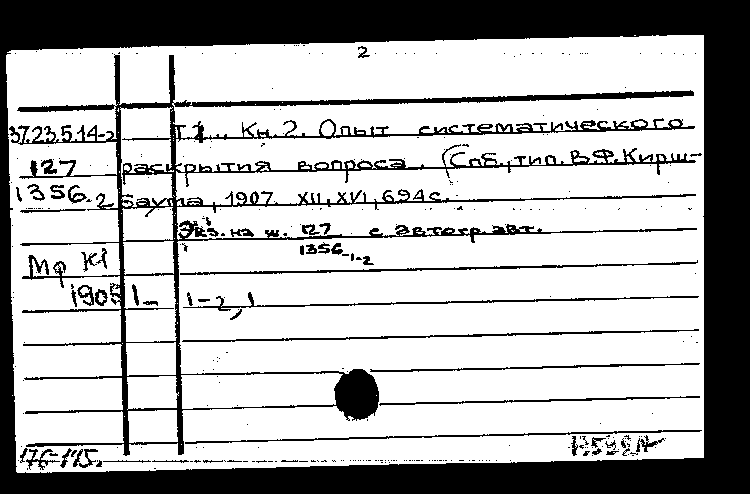 2
37.23.5.14-2 Т.1., Кн.2. Опыт систематического
127 раскрытия вопроса. (Спб., тип. В.Ф.Кирш-
1356-2 баума, 1907. XII, XVI, 694 с.
Экз. на ш. 127 с автогр. авт.
1356-1-2
Мф К1
1905 1- 1-2, 1
176-115.